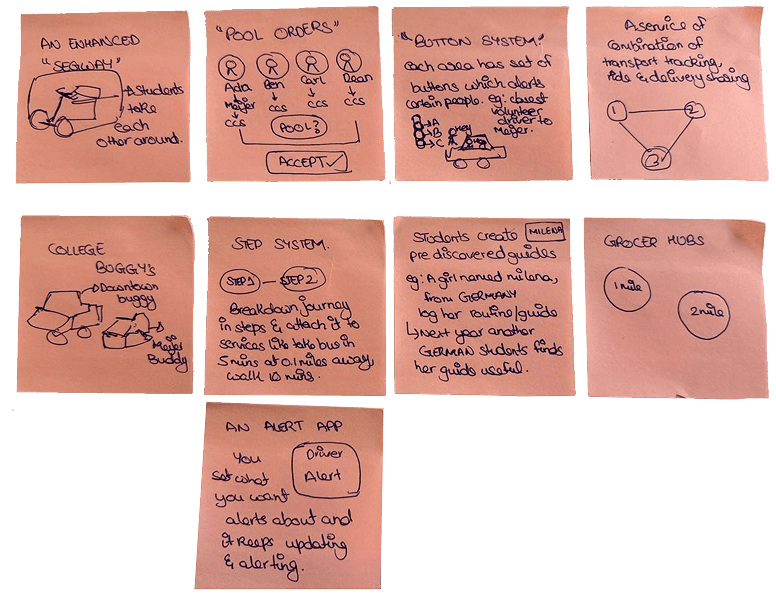 AN ENHANCED
"SEGWAY"
Students
take
each
other around.
"POOL ORDERS"
Ada Ben Carl Dean
Meijer ccs ccs ccs
ccs
POOL?
ACCEPT ✓
"BUTTON SYSTEM."
each area has set of
buttons which alerts
certain people. eg: closest
volunteer
driver to
Meijer.
A
B
C
okay
A service of
Combination of
transport tracking,
ride & delivery sharing
1 2
3
COLLEGE
BUGGY's
Downtown
buggy
Meijer
Buddy
STEP SYSTEM.
STEP 1 — STEP 2
Breakdown journey
in steps & attach it to
services like take bus in
5 mins at 0.1 miles away,
walk 10 mins.
Students create MILENA
pre discovered guides
eg: A girl named milena,
from GERMANY
log her routine/guide
↳ Next year another
GERMAN students finds
her guide useful.
GROCER HUBS
1 mile
2 mile
AN ALERT APP
You
set what
you want
alerts about and
it keeps updating
& alerting.
Driver
Alert